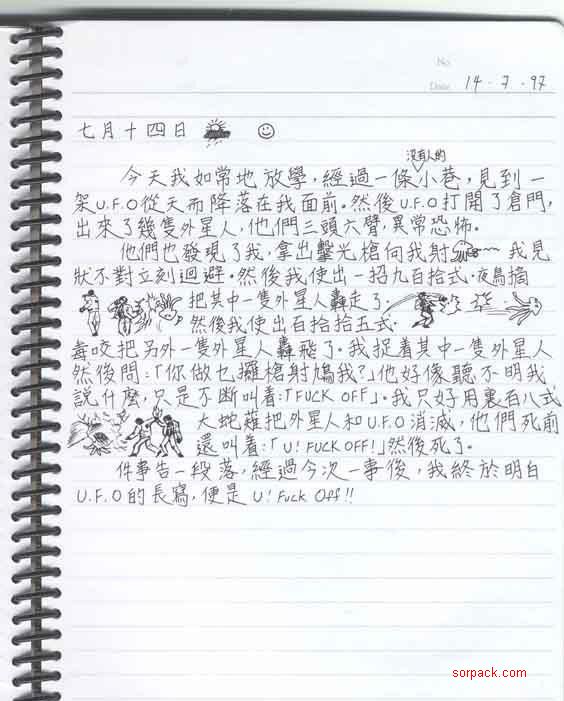 No
Date 14 · 7 · 97
七月十四日
沒有人的
今天我如常地放學,經過一條小巷,見到一
架U.F.O從天而降落在我面前.然後U.F.O打開了倉門,
出來了幾隻外星人,他們三頭六臂,異常恐怖.
他們也發現了我,拿出擊光槍向我射 我見
狀不對立刻迴避.然後我使出一招九百拾式.夜鳥摘
把其中一隻外星人轟走了.
然後我使出百拾拾五式.
毒咬把另外一隻外星人轟飛了.我捉着其中一隻外星人
然後問:「你做乜攞槍射鳩我?」他好像聽不明我
說什麼,只是不斷叫着:「FUCK OFF」.我只好用裏百八式
大蛇薙把外星人和U.F.O消滅,他們死前
還叫着:「U! FUCK OFF!」然後死了.
件事告一段落,經過今次一事後,我終於明白
U.F.O的長寫,便是U! Fuck Off!!
sorpack.com